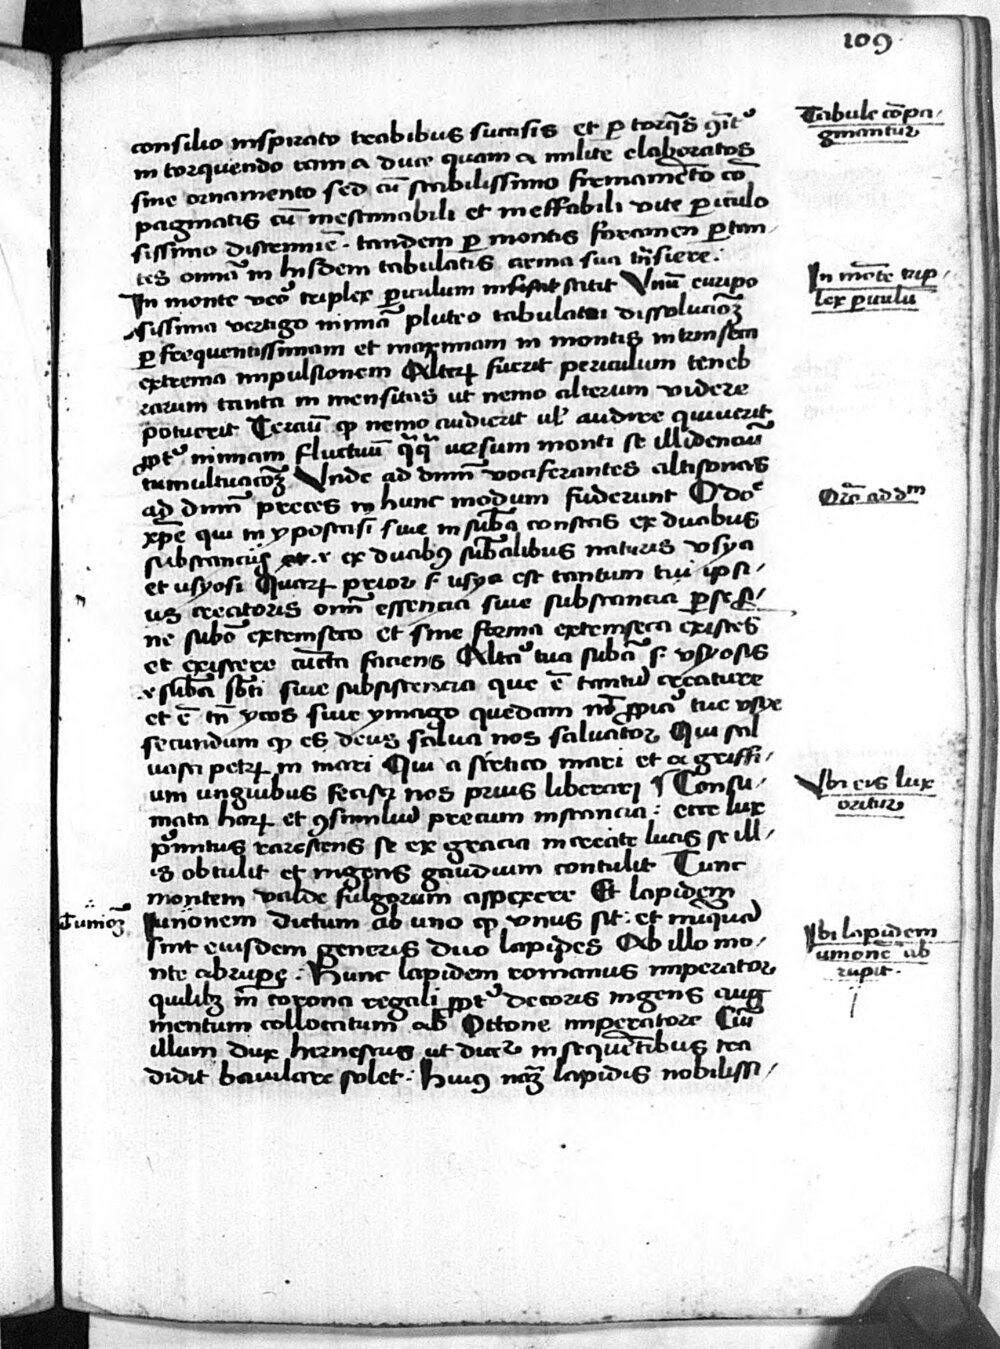 109
Tabule co̅pa/
ginantur
consilio inspirato trabibus succisis et p torq̅s
in torquendo tam a duce quam a milite elaboratos
sine ornamento sed cu̅ stabilissimo firmame̅to co̅
paginatis cu̅ inestimabili et ineffabili vite piculo
sissimo discrimi̅e . tandem p montis foramen ptran
tes om̅a in hijsdem tabulatis arma sua tn̅siere :
In monte triplex piculum stetit Vnu̅ euripo
sissima vertigo nimia̅ pluteo tabulatoi dissolucio̅ꝫ
p frequentissimam et maximam in montis intrinseca
extrema impulsionem Alterꝝ fuerit periculum teneb
rarum tanta in mensitas ut nemo alterum videre
potuerit Terciu̅ ꝙ nemo audierit ul' audire quiuerit
nimiam fluctuu̅ versum monti se illidenciu̅
tumultuacio̅ꝫ Vnde ad dmm̅ vociferantes altisonas
ad dmm̅ preces in hunc modum fuderunt O do
xpe̅ qui in ypostasi siue in sub̅a constas ex duabus
substancijs et ex duabꝯ sub̅alibus naturis vsya
et usyosi Quarꝝ prior s usya est tantum tui ipsi/
us creatoris om̅i essencia siue substancia p se
ne subo̅ extrinseco et sine forma extrinseca existe̅s
et existere cu̅cta faciens Alta tua suba̅ s vsyosis
sub̅a siue subsistencia que e̅ tantu̅ creature
et e̅ tn̅ ycos siue ymago quedam tue vsye
secundum ꝙ es deus salua nos saluator Qui sal
uasti petrꝝ in mari Qui a scitico mari et a griffi/
um unguibus fecisti nos prius liberari Consu/
mata harꝝ et ꝯsimiliu̅ precum instancia : ecce lux
pinitus rarescens se ex gracia increate lucis se ill/
is obtulit et ingens gaudium contulit Tunc
montem valde fulgorum aspexere Et lapidem
iunionem dictum ab uno ꝙ vnus sit : et nuquã
sint eiusdem generis duo lapides Ab illo mo/
nte abrupe : Hunc lapidem romanus imperator
quilibꝫ in corona regali decoris ingens aug
mentum collocatum ab Ottone imperatore
illum dux hernestus ut dicet̅ in seque̅tibus tra
didit baiulare solet : Huiꝯ na̅ꝫ lapidis nobilissi/
In mo̅te trip/
lex piculu̅
Oro̅ ad dm̅
Ubi eis lux
oritur
Ibi lapidem
unione̅ ab
rupit .